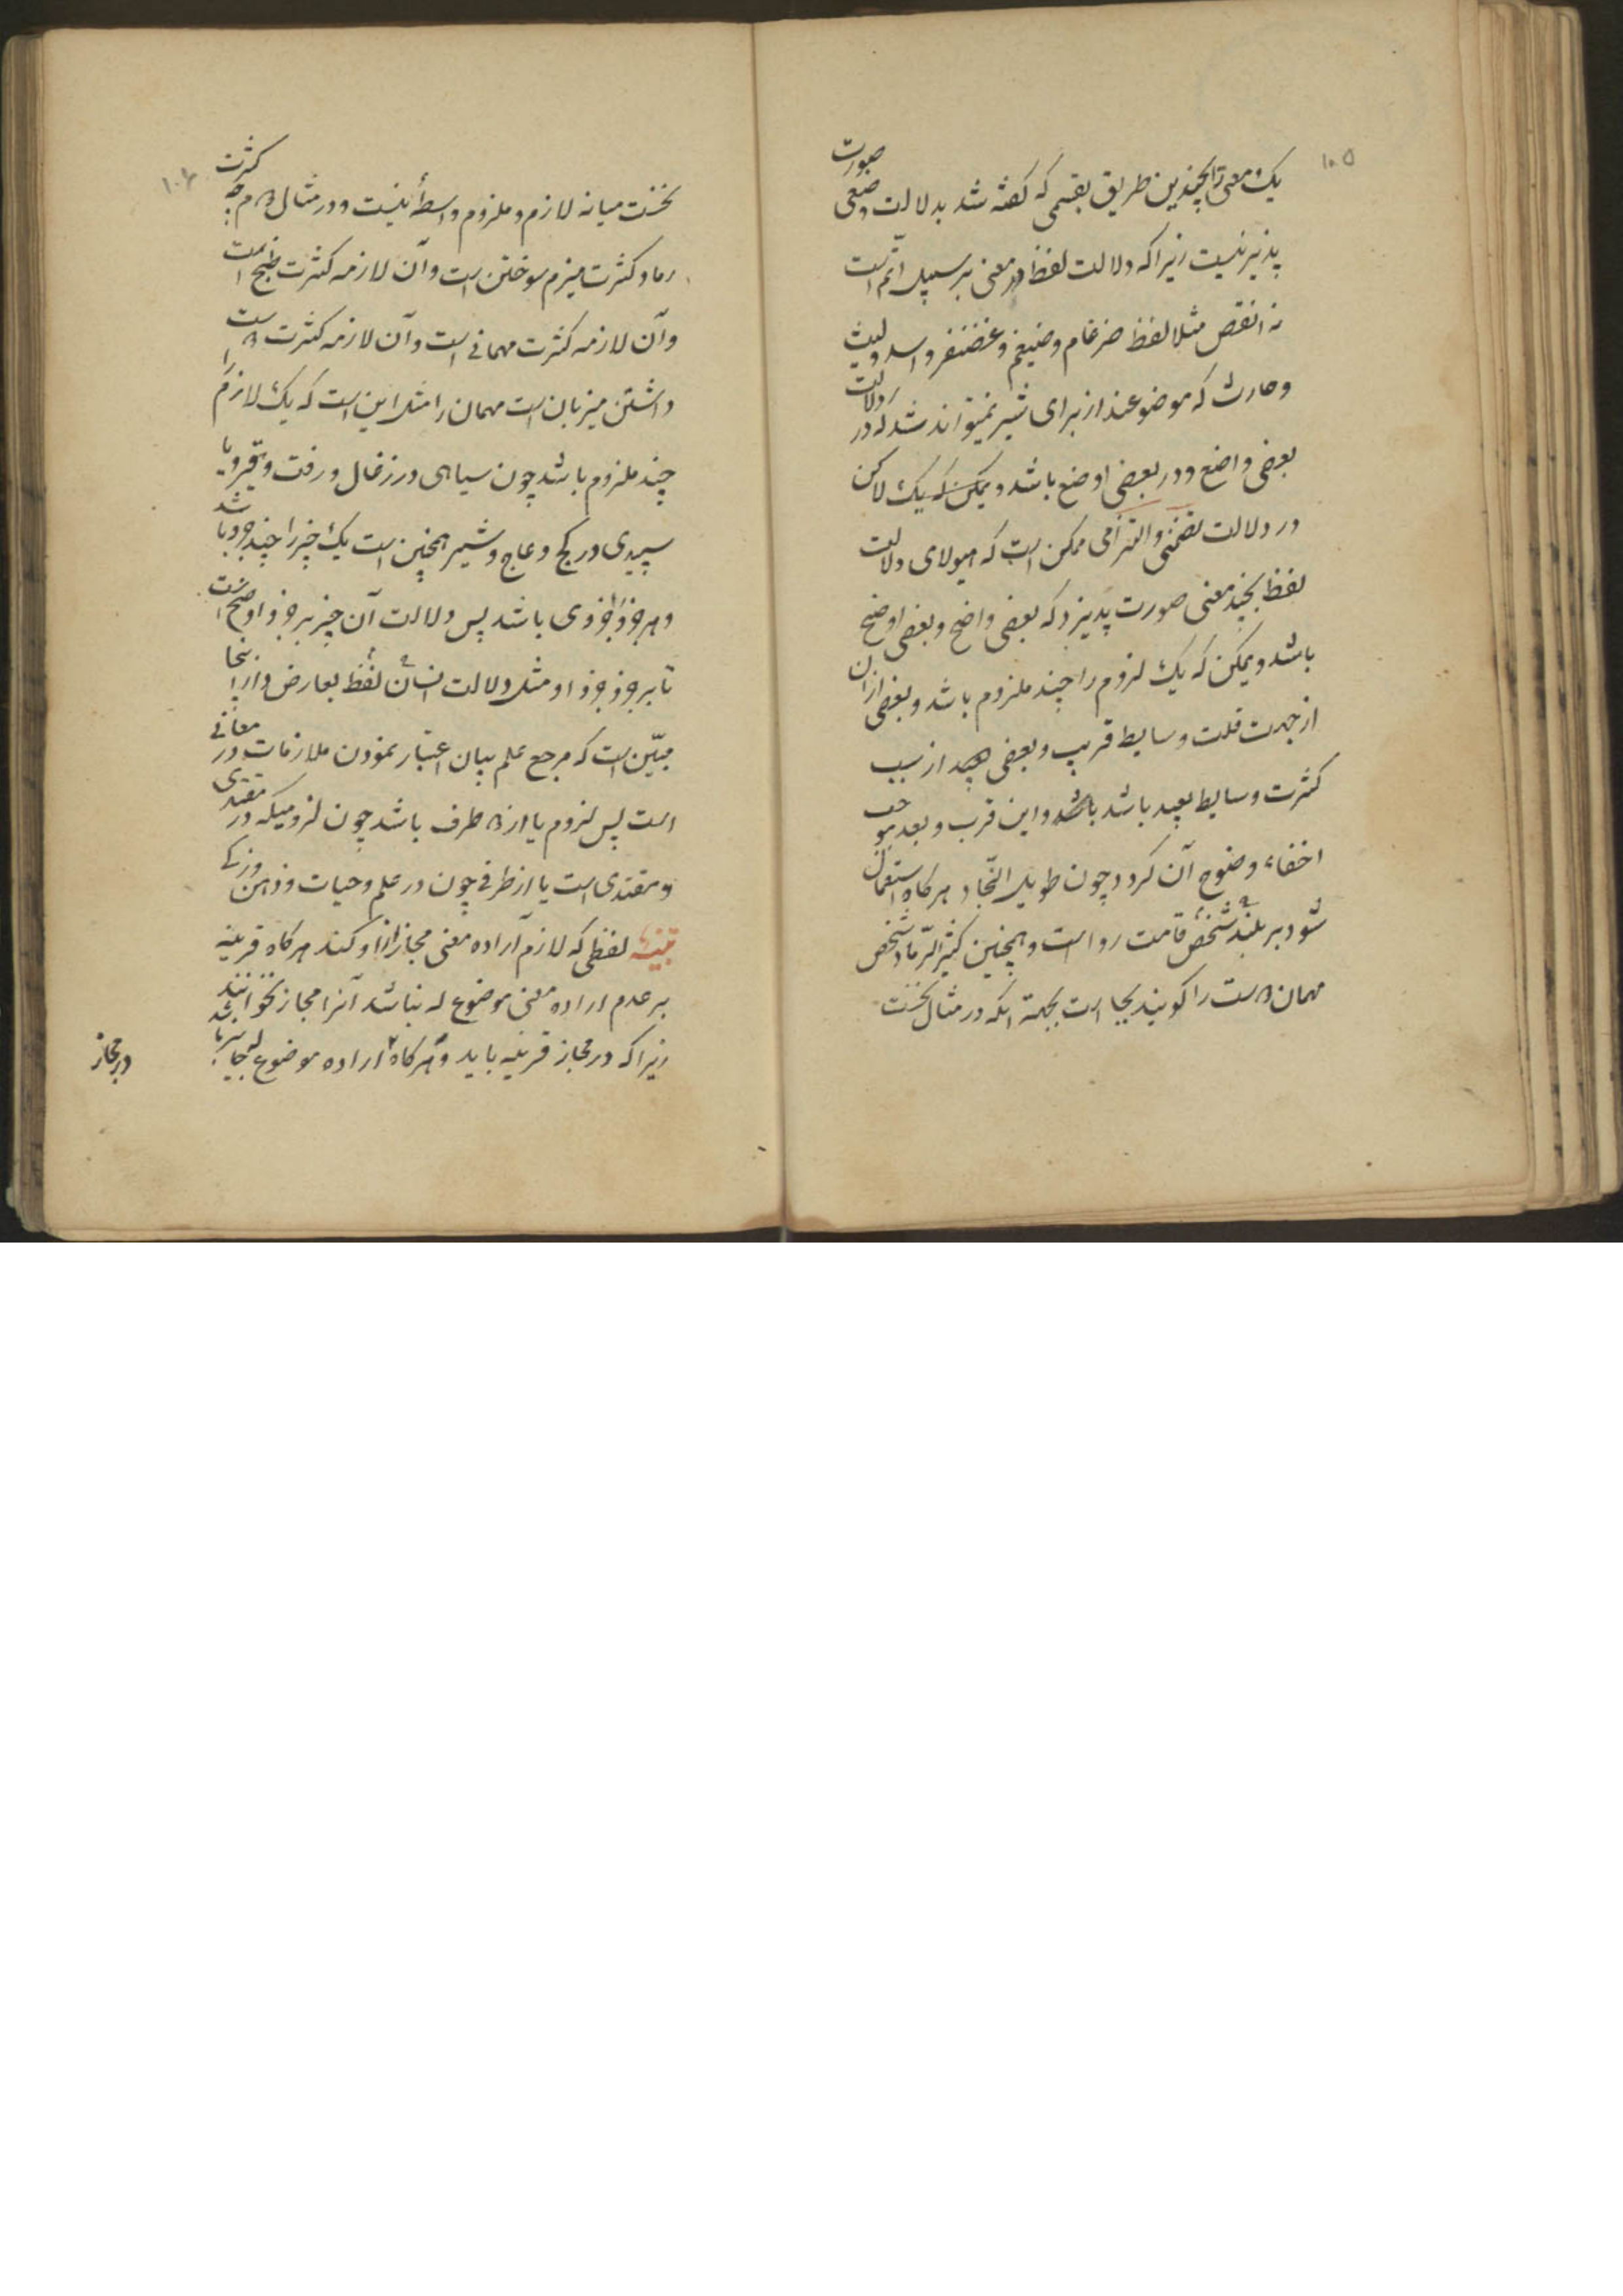 ۱۰۵
یک معنی را بچندین طریق بقسمی که گفته شد بدلالت وضعی صورت
پذیر نیست زیرا که دلالت لفظ در معنی بر سبیل اتم است
نه انقص مثلا لفظ ضرغام و ضیغم و غضنفر و اسد و لیث
و حارث که موضوعند از برای شیر نمیتواند شد که در دلالت
بعضی واضح و در بعضی اوضح باشد و یمکن که یک لاکن
در دلالت تضمنی و التزامی ممکن است که هیولای دلالت
لفظ بچند معنی صورت پذیرد که بعضی واضح و بعضی اوضح
باشد و یمکن که یک لزوم را چند ملزوم باشد و بعضی از آن
از جهت قلت وسایط قریب و بعضی از سبب
کثرت وسایط بعید باشد و این قرب و بعد موجب
اخفاء وضوح آن گردد چون طویل النجاد هرگاه استعمال
شود بر بلند قامت رواست و همچنین کثیر الرماد شخص
مهمان دوست را گویند بجا است بجهة آنکه در مثال نخست
۱۰۶
نخست میانه لازم و ملزوم واسطهٔ نیست و در مثال دوم چه کثرت
رماد کثرت هیزم سوختن است و آن لازمه کثرت طبخ است
و آن لازمه کثرت مهمانی است و آن لازمه کثرت دوست
داشتن میزبان است مهمان را مثل این است که یک لازم را
چند ملزوم باشد چون سیاهی در زغال و زفت و قیر و یا
سپیدی در گچ و عاج و شیر همچنین است یک چیز را چند جزو باشد
و هر جزو را جزوی باشد پس دلالت آن چیز بر جزو اوضح است
تا بر جزو جزو او مثل دلالت لفظ انسان از اینجا
مبیّن است که مرجع علم بیان اعتبار نمودن ملازمات در معانی
است پس لزوم یا از دو طرف باشد چون لزومیکه در مقتدی
و مقتدی است یا از طرفی چون در علم و حیات و
تنبیه لفظی که لازم آراده معنی مجاز از او کند هرگاه قرینه
بر عدم اراده معنی موضوع له نباشد آنرا مجاز نخوانند
زیرا که در مجاز قرینه باید و هرگاه اراده موضوع له
در مجاز